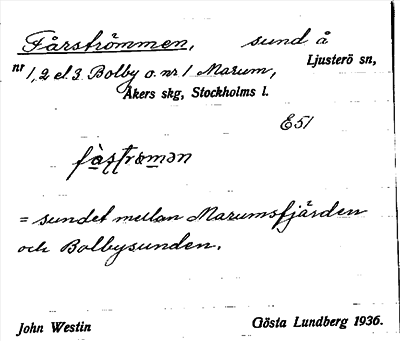 Fårströmmen, sund å
Ljusterö sn,
nr 1, 2 el 3 Bolby o. nr 1 Marum,
Åkers skg, Stockholms l.
E51
= sundet mellan Marumsfjärden
och Bolbysunden.
John Westin Gösta Lundberg 1936.